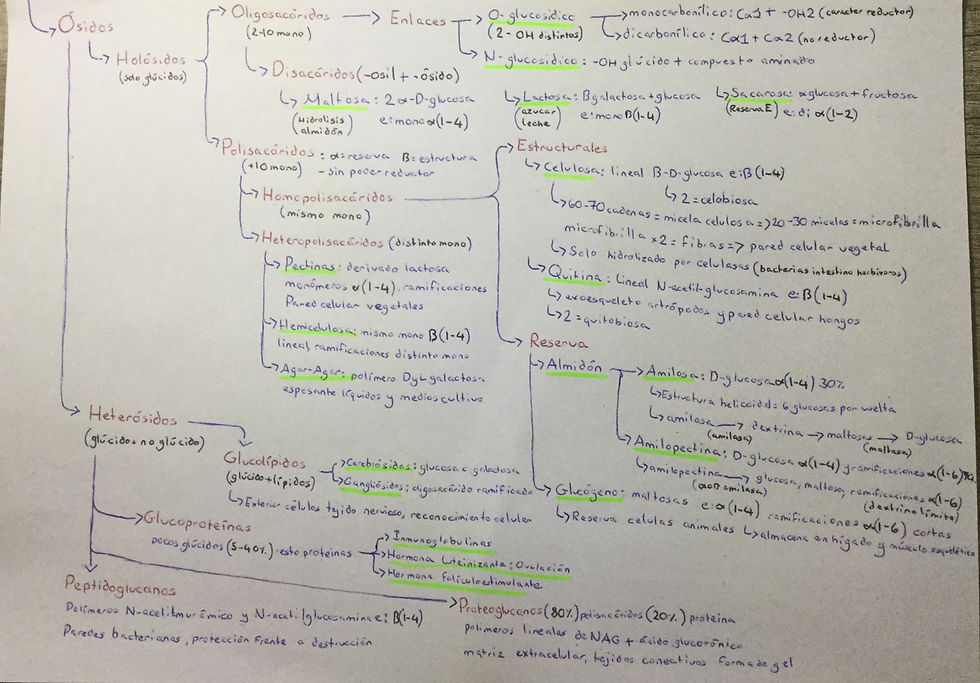 Ósidos
Holósidos
(solo glúcidos)
Oligosacáridos
(2-10 mono)
Enlaces
O-glucosídico
(2 -OH distintos)
monocarbonílico: Cα1 + -OH2 (caracter reductor)
dicarbonílico: Cα1 + Cα2 (no reductor)
N-glucosídico: -OH glúcido + compuesto aminado
Disacáridos (-osil + -ósido)
Maltosa: 2 α-D-glucosa
(Hidrólisis almidón)
e: mono α(1-4)
Lactosa: βgalactosa + glucosa
(azucar leche)
e: mono β(1-4)
Sacarosa: αglucosa + fructosa
(Reserva E)
e: di α(1-2)
Polisacáridos: α=reserva β=estructura
(+10 mono) - sin poder reductor
Homopolisacáridos
(mismo mono)
Heteropolisacáridos (distinto mono)
Pectinas: derivado lactosa
monómeros α(1-4), ramificaciones
Pared celular vegetales
Hemicelulosa: mismo mono β(1-4)
lineal, ramificaciones distinto mono
Agar-Agar: polímero DyL galactosa
espesante líquidos y medios cultivo
Estructurales
Celulosa: lineal β-D-glucosa e: β(1-4)
2 = celobiosa
60-70 cadenas = micela celulosa => 20-30 micelas = microfibrilla
microfibrilla x2 = fibras => pared celular vegetal
Solo hidrolizado por celulasas (bacterias intestino herbívoros)
Quitina: lineal N-acetil-glucosamina e: β(1-4)
exoesqueleto artrópodos y pared celular hongos
2 = quitobiosa
Reserva
Almidón
Amilosa: D-glucosa α(1-4) 30%
Estructura helicoidal = 6 glucosas por vuelta
amilosa dextrina maltosas D-glucosa
(amilasa) (maltasa)
Amilopectina: D-glucosa α(1-4) y ramificaciones α(1-6)
amilopectina glucosa, maltosa, ramificaciones α(1-6)
(α o β amilasa) (dextrina límite)
Glcógeno: maltosas e: α(1-4) ramificaciones α(1-6) cortas
Reserva celulas animales almacena en hígado y músculo esquelético
Heterósidos
(glúcido + no glúcido)
Glucolípidos
(glúcido + lípidos)
Cerebrósidos: glucosa o galactosa
Gangliósidos: oligosacárido ramificado
Exterior células tejido nervioso, reconocimiento celular
Glucoproteínas
pocos glúcidos (5-40%) resto proteinas
Inmunoglobulinas
Hormona luteinizante: Ovulación
Hormona foliculoestimulante
Peptidoglucanos
Polímeros N-acetilmurámico y N-acetilglucosamina e: β(1-4)
Paredes bacterianas, protección frente a destrucción
Proteoglucanos (80%) polisacáridos (20%) proteina
polímeros lineales de NAG + ácido glucorónico
matriz extracelular, tejidos conectivos forma de gel